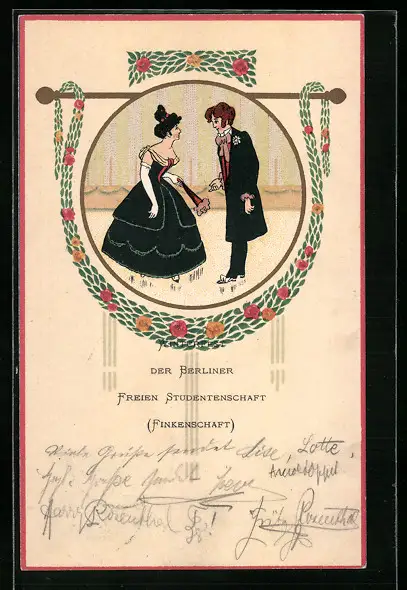 DER BERLINER
FREIEN STUDENTENSCHAFT
(FINKENSCHAFT)
Viele Grüße sendet Lise, Lotte,
Grüße sendet
Harry Rosenthal
Fritz Rosenthal